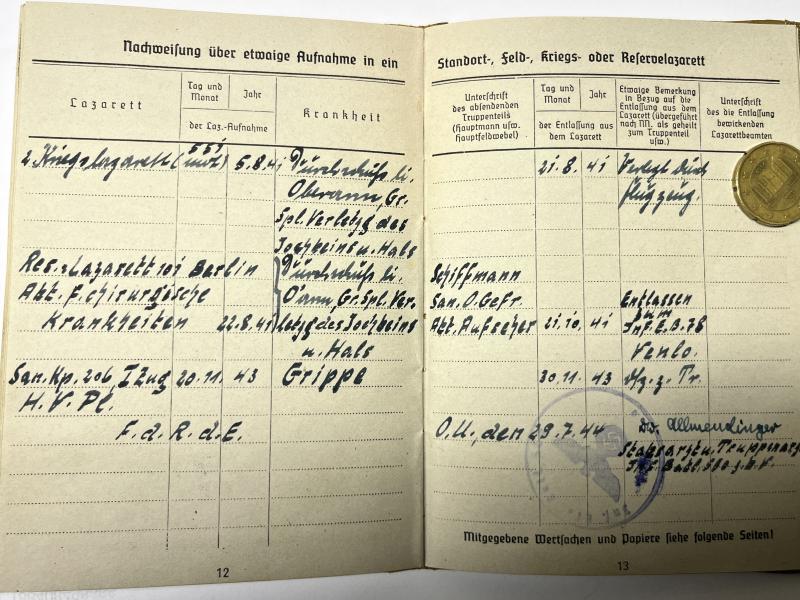 Nachweisung über etwaige Aufnahme in ein
Lazarett
Tag und Monat
Jahr
der Laz.-Aufnahme
Krankheit
2. Kriegslazarett (
5.8.41
Durchschuß li.
Oberarm, Gr.
Spl. Verletzg des
Jochbeins u. Hals
Res.-Lazarett 101 Berlin
Durchschuß li.
Abt. f. chirurgische
O'arm, Gr. Spl. Ver-
Krankheiten 22.8.41
letzg des Jochbeins
u. Hals
San. Kp. 206, I Zug 20.11. 43 Grippe
H. V. Pl.
F. d. R. d. E.
12
Standort-, Feld-, Kriegs- oder Reservelazarett
Unterschrift
des absendenden
Truppenteils
(Hauptmann usw.
Hauptfeldwebel)
Tag und Monat
Jahr
der Entlassung aus
dem Lazarett
Etwaige Bemerkung
in Bezug auf die
Entlassung aus dem
Lazarett (übergeführt
nach NN. als geheilt
zum Truppenteil
usw.)
Unterschrift
des die Entlassung
bewirkenden
Lazarettbeamten
21.8. 41 Verlegt durch
Flugzeug.
Schiffmann
San. O. Gefr.
Entlassen
zum
Abt. Aufseher 21.10. 41 Inf. E. B. 78
Venlo.
30.11. 43 z. Tr.
O.U., den 29.7.44 Dr. Allmendinger
Stabsarzt u. Truppenarzt
Mitgegebene Wertsachen und Papiere siehe folgende Seiten!
13